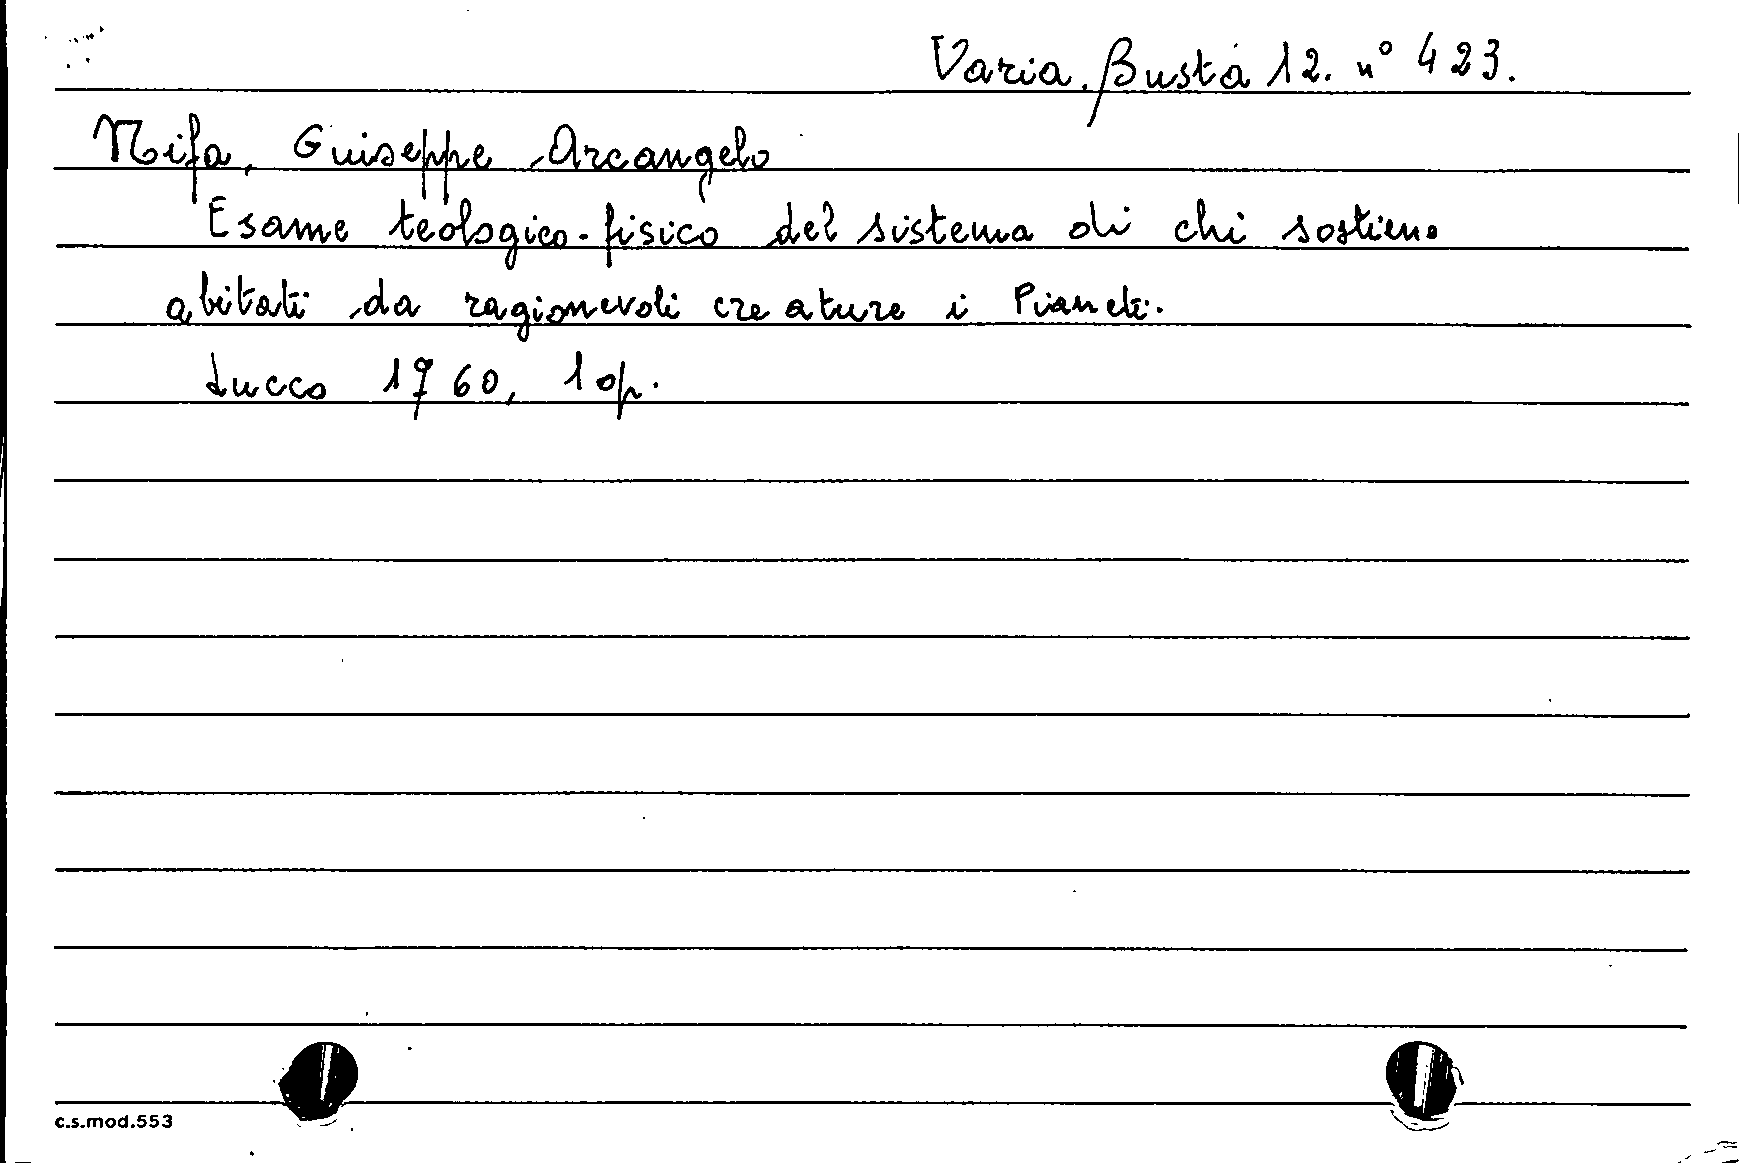 Varia. Busta 12. n° 423.
Nifa, Guiseppe Arcangelo
Esame teologico-fisico del sistema di chi sostiene
abitati da ragionevoli creature i Pianeti.
Lucca 1760, 1 op.
c.s.mod.553